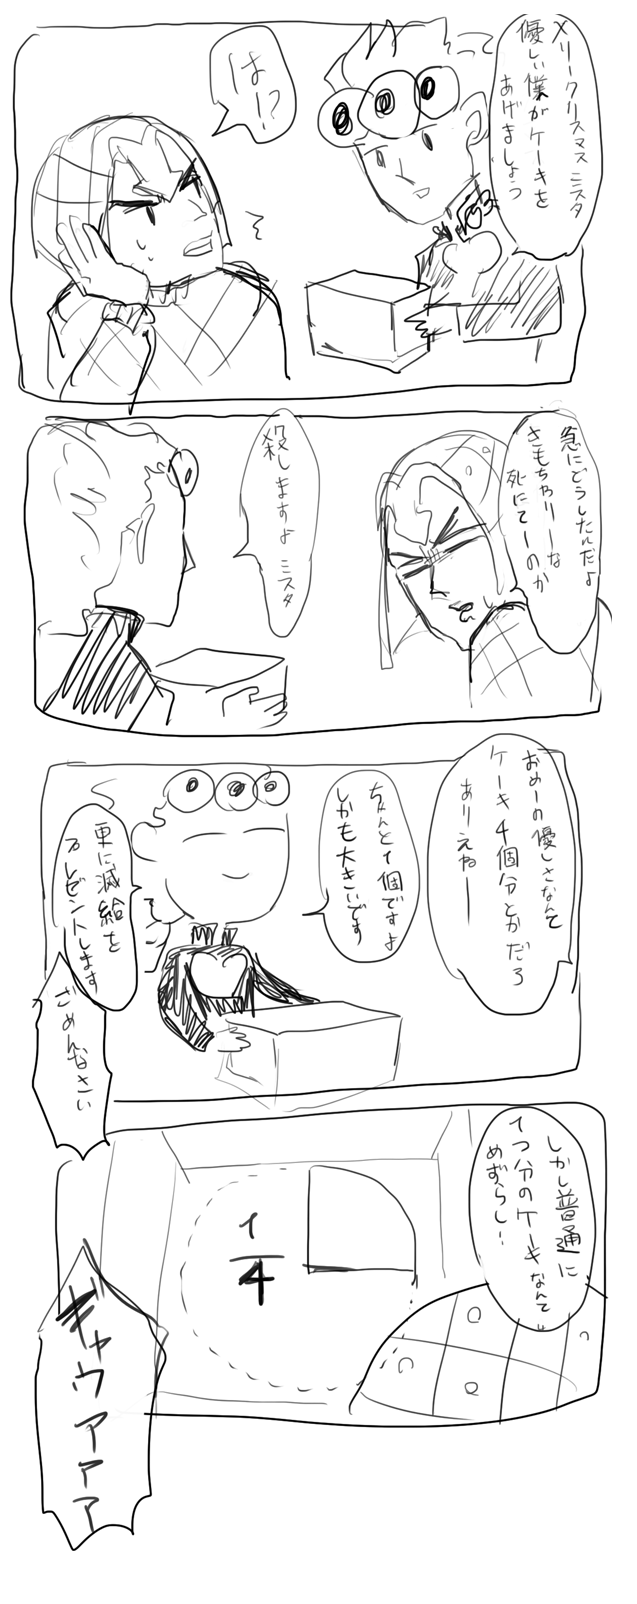 メリークリスマス ミスタ
優しい僕がケーキを
あげましょう
は!?
急にどうしたんだよ
きもちわりーな
死にてーのか
殺しますよ ミスタ
おめーの優しさなんて
ケーキ4個分とかだろ
ありえねー
ちゃんと1個ですよ
しかも大きいです
更に減給を
プレゼントします
ごめんなさい
しかし普通に
1つ分のケーキなんて
めずらし!
1
4
ギャウアアア